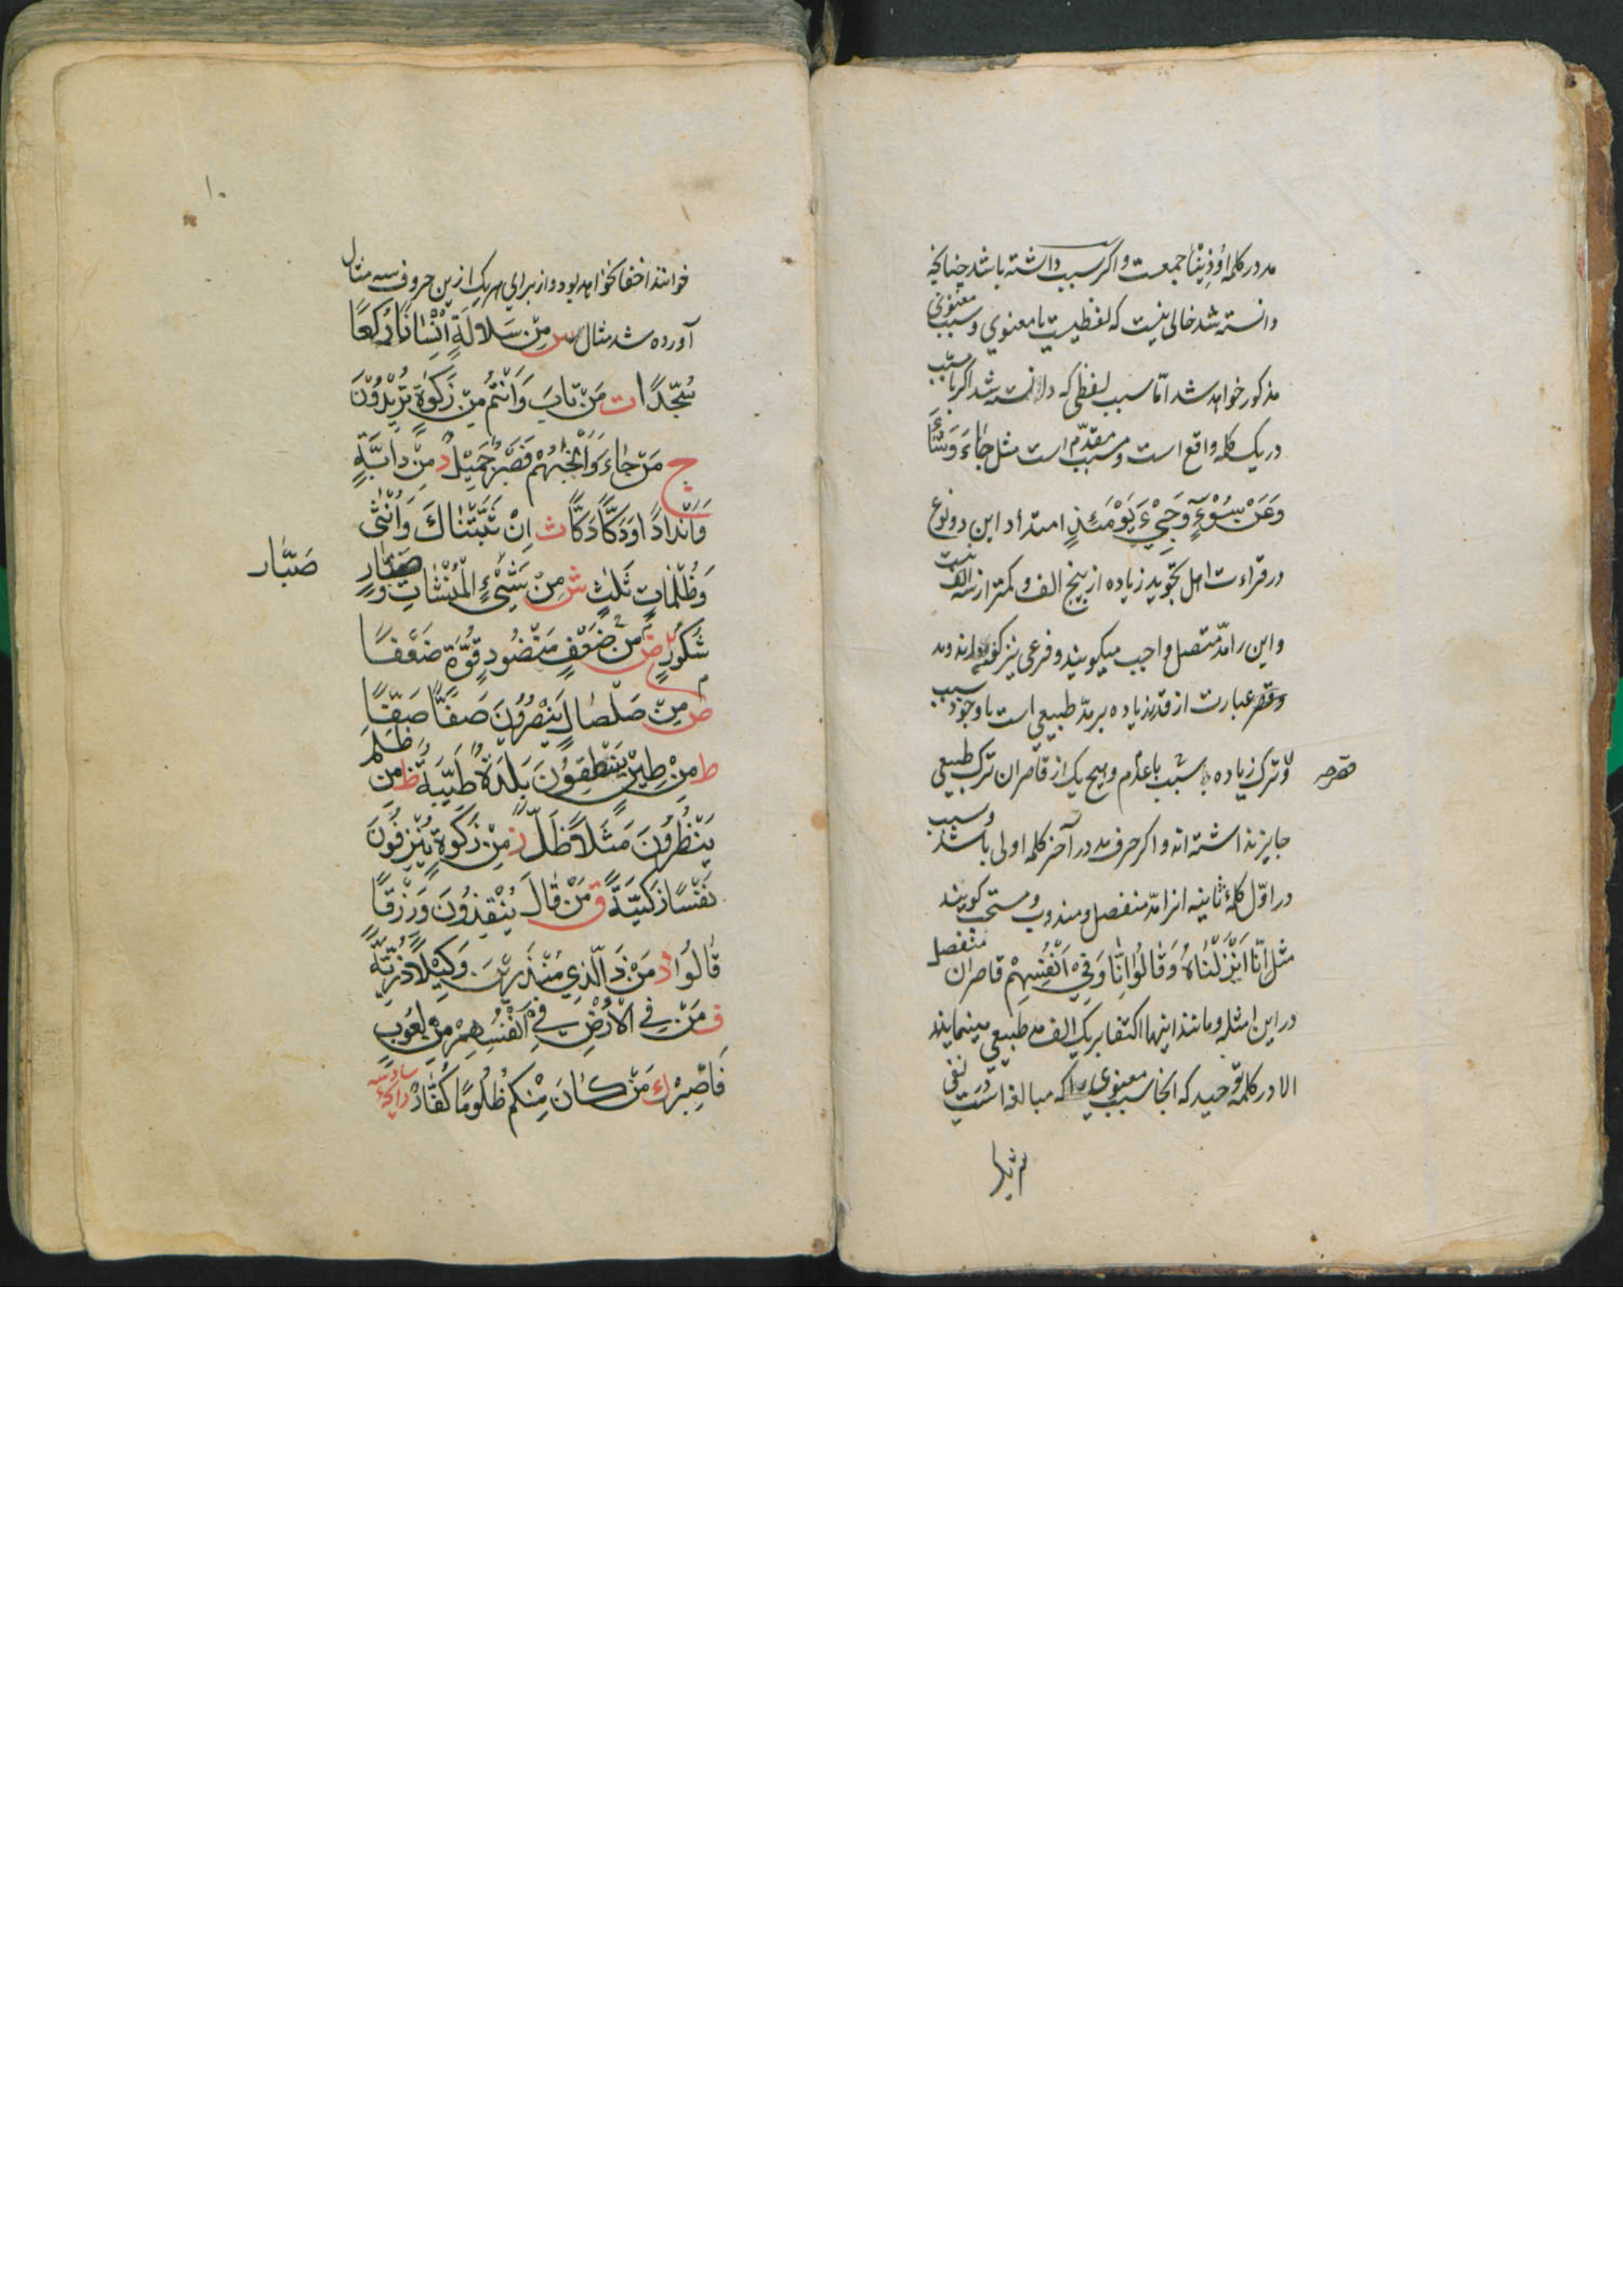 مد در کلمه اوُذِیْنٰا جمعست و اکر سبب داشته باشد چنانچه
دانسته شد خالی نیست که لفظیست یا معنوی و سبب معنوی
مذکور خواهد شد امّا سبب لفظی که دانسته شد اکر با سبب
در یک کلمه واقع است و سبب مقدّم است مثل جٰاءَ وَشٰاءَ
وَعَنْ سُوْءٍ وَجِیْءَ یَوْمَئِذٍ امتداد این دو نوع
در قراءت اهل تجوید زیاده از پنج الف و کمتر از سه الف نیست
و این را مدّ متصل و واجب میکویند و فرعی نیز کفته اند و مد
و قصر عبارت از قدر زیاده بر مدّ طبیعی است با وجود سبب
و ترک زیاده بسبب یا عدم و هیچ یک از قاصران ترک طبیعی
جایز نداشته اند و اکر حرف مد در آخر کلمه اولی باشد و سبب
در اوّل کلمهٔ ثانیه انرا مدّ منفصل و مندوب و مستحب کویند
مثل اِنّٰا اَنْزَلْنٰاهُ وَقٰالُوْا اِنّٰا وَفِیْ اَنْفُسِهِمْ قاصران منفصل
در این امثله و مانند اینها اکتفا بر یک الف مد طبیعی مینمایند
الا در کلمه توحید که انجا سبب معنوی را که مبالغه است در نفی
خوانند اخفا نخواهد بود و از برای هر یک از این حروف سه مثال
آورده شد مثال س مِنْ سَلٰالَةٍ اِنْسٰانًا رُکَّعًا
سُجَّدًا ت مَنْ تٰابَ وَاَنْتُمْ مِنْ زَکٰوةٍ تُرِیْدُوْنَ
ج مَنْ جٰاءَ وَاَنْجَیْهُمْ فَصَبْرٌ جَمِیْلٌ د مِنْ دٰابَّةٍ
وَاَنْدٰادًا وَدَکًّا دَکًّا ث اِنْ ثَبَّتْنٰاکَ وَاُنْثٰی
وَظُلُمٰاتٍ ثَلٰثٍ ش مِنْ شَیْءٍ الْمُنْشَاٰتُ وَ صَبّٰارٍ
صَبّٰار
شَکُوْرٍ ض مِنْ ضَعْفٍ مَنْضُوْدٍ قُوَّةٍ ضَعْفًا
ص مِنْ صَلْصٰالٍ یَنْصُرُوْنَ صَفًّا صَفًّا
ط مِنْ طِیْنٍ یَنْطِقُوْنَ بَلْدَةٌ طَیِّبَةٌ ظ مَنْ ظَلَمَ
یَنْظُرُوْنَ مَثَلًا ظَلَّ ز مِنْ زَکٰوةٍ یُنْزِفُوْنَ
نَفْسًا زَکِیَّةً ق مَنْ قٰالَ یُنْقِذُوْنَ وَرِزْقًا
قٰالُوْا ذ مَنْ ذَا الَّذِی مُنْذِرِیْنَ وَکِیْلًا ذُرِّیَّةً
ف مَنْ فِی الْاَرْضِ فِیْ اَنْفُسِهِمْ مِنْ لُغُوْبٍ
فَاصْبِرْ ک مَنْ کٰانَ مِنْکُمْ ظَلُوْمًا کُفّٰارٌ